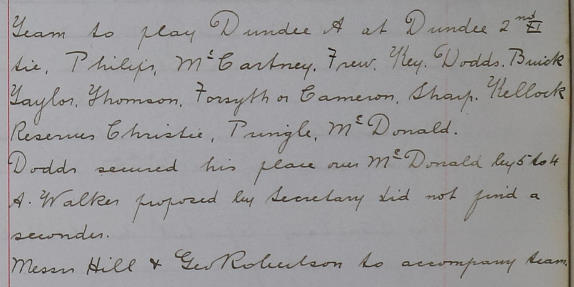 Team to play Dundee A at Dundee 2nd XI
tie, Philip, McCartney, Frew, Key, Dodds, Buick
Taylor, Thomson, Forsyth or Cameron, Sharp, Kellock
Reserves Christie, Pringle, McDonald.
Dodds secured his place over McDonald by 5 to 4
A. Walker proposed by Secretary did not find a
seconder.
Messrs Hill & Geo Robertson to accompany team.